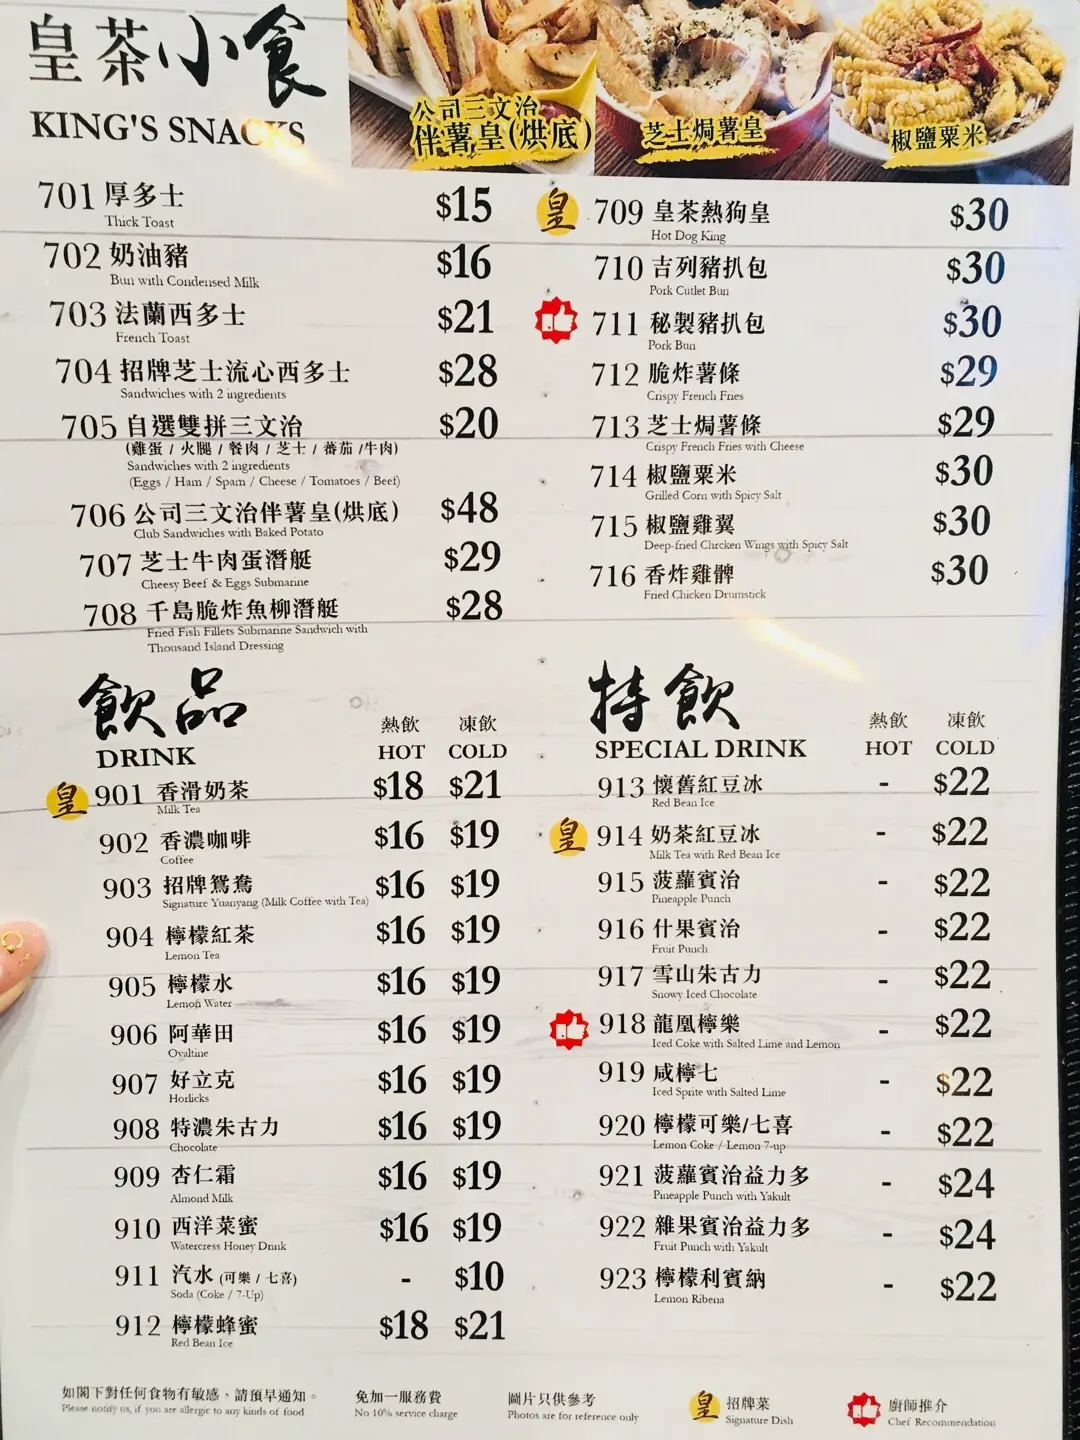 皇茶小食
KING'S SNACKS
公司三文治
伴薯皇(烘底)
芝士焗薯皇
椒鹽粟米
701 厚多士 $15
Thick Toast
702 奶油豬 $16
Bun with Condensed Milk
703 法蘭西多士 $21
French Toast
704 招牌芝士流心西多士 $28
Sandwiches with 2 ingredients
705 自選雙拼三文治 $20
(雞蛋 / 火腿 / 餐肉 / 芝士 / 蕃茄 /牛肉)
Sandwiches with 2 ingredients
(Eggs / Ham / Spam / Cheese / Tomatoes / Beef)
706 公司三文治伴薯皇(烘底) $48
Club Sandwiches with Baked Potato
707 芝士牛肉蛋潛艇 $29
Cheesy Beef & Eggs Submarine
708 千島脆炸魚柳潛艇 $28
Fried Fish Fillets Submarine Sandwich with
Thousand Island Dressing
皇 709 皇茶熱狗皇 $30
Hot Dog King
710 吉列豬扒包 $30
Pork Cutlet Bun
711 秘製豬扒包 $30
Pork Bun
712 脆炸薯條 $29
Crispy French Fries
713 芝士焗薯條 $29
Crispy French Fries with Cheese
714 椒鹽粟米 $30
Grilled Corn with Spicy Salt
715 椒鹽雞翼 $30
Deep-fried Chrcken Wings with Spicy Salt
716 香炸雞髀 $30
Fried Chicken Drumstick
飲品 熱飲 凍飲
DRINK HOT COLD
皇 901 香滑奶茶 $18 $21
Milk Tea
902 香濃咖啡 $16 $19
Coffee
903 招牌鴛鴦 $16 $19
Signature Yuanyang (Milk Coffee with Tea)
904 檸檬紅茶 $16 $19
Lemon Tea
905 檸檬水 $16 $19
Lemon Water
906 阿華田 $16 $19
Ovaltine
907 好立克 $16 $19
Horlicks
908 特濃朱古力 $16 $19
Chocolate
909 杏仁霜 $16 $19
Almond Milk
910 西洋菜蜜 $16 $19
Watercress Honey Drink
911 汽水 (可樂 / 七喜) - $10
Soda (Coke / 7-Up)
912 檸檬蜂蜜 $18 $21
Red Bean Ice
特飲 熱飲 凍飲
SPECIAL DRINK HOT COLD
913 懷舊紅豆冰 - $22
Red Bean Ice
皇 914 奶茶紅豆冰 - $22
Milk Tea with Red Bean Ice
915 菠蘿賓治 - $22
Pineapple Punch
916 什果賓治 - $22
Fruit Punch
917 雪山朱古力 - $22
Snowy Iced Chocolate
918 龍凰檸樂 - $22
Iced Coke with Salted Lime and Lemon
919 咸檸七 - $22
Iced Sprite with Salted Lime
920 檸檬可樂/七喜 - $22
Lemon Coke / Lemon 7-up
921 菠蘿賓治益力多 - $24
Pineapple Punch with Yakult
922 雜果賓治益力多 - $24
Fruit Punch with Yakult
923 檸檬利賓納 - $22
Lemon Ribena
如閣下對任何食物有敏感，請預早通知。
Please notify us, if you are allergic to any kinds of food
免加一服務費
No 10% service charge
圖片只供參考
Photos are for reference only
皇 招牌菜
Signature Dish
廚師推介
Chef Recommendation